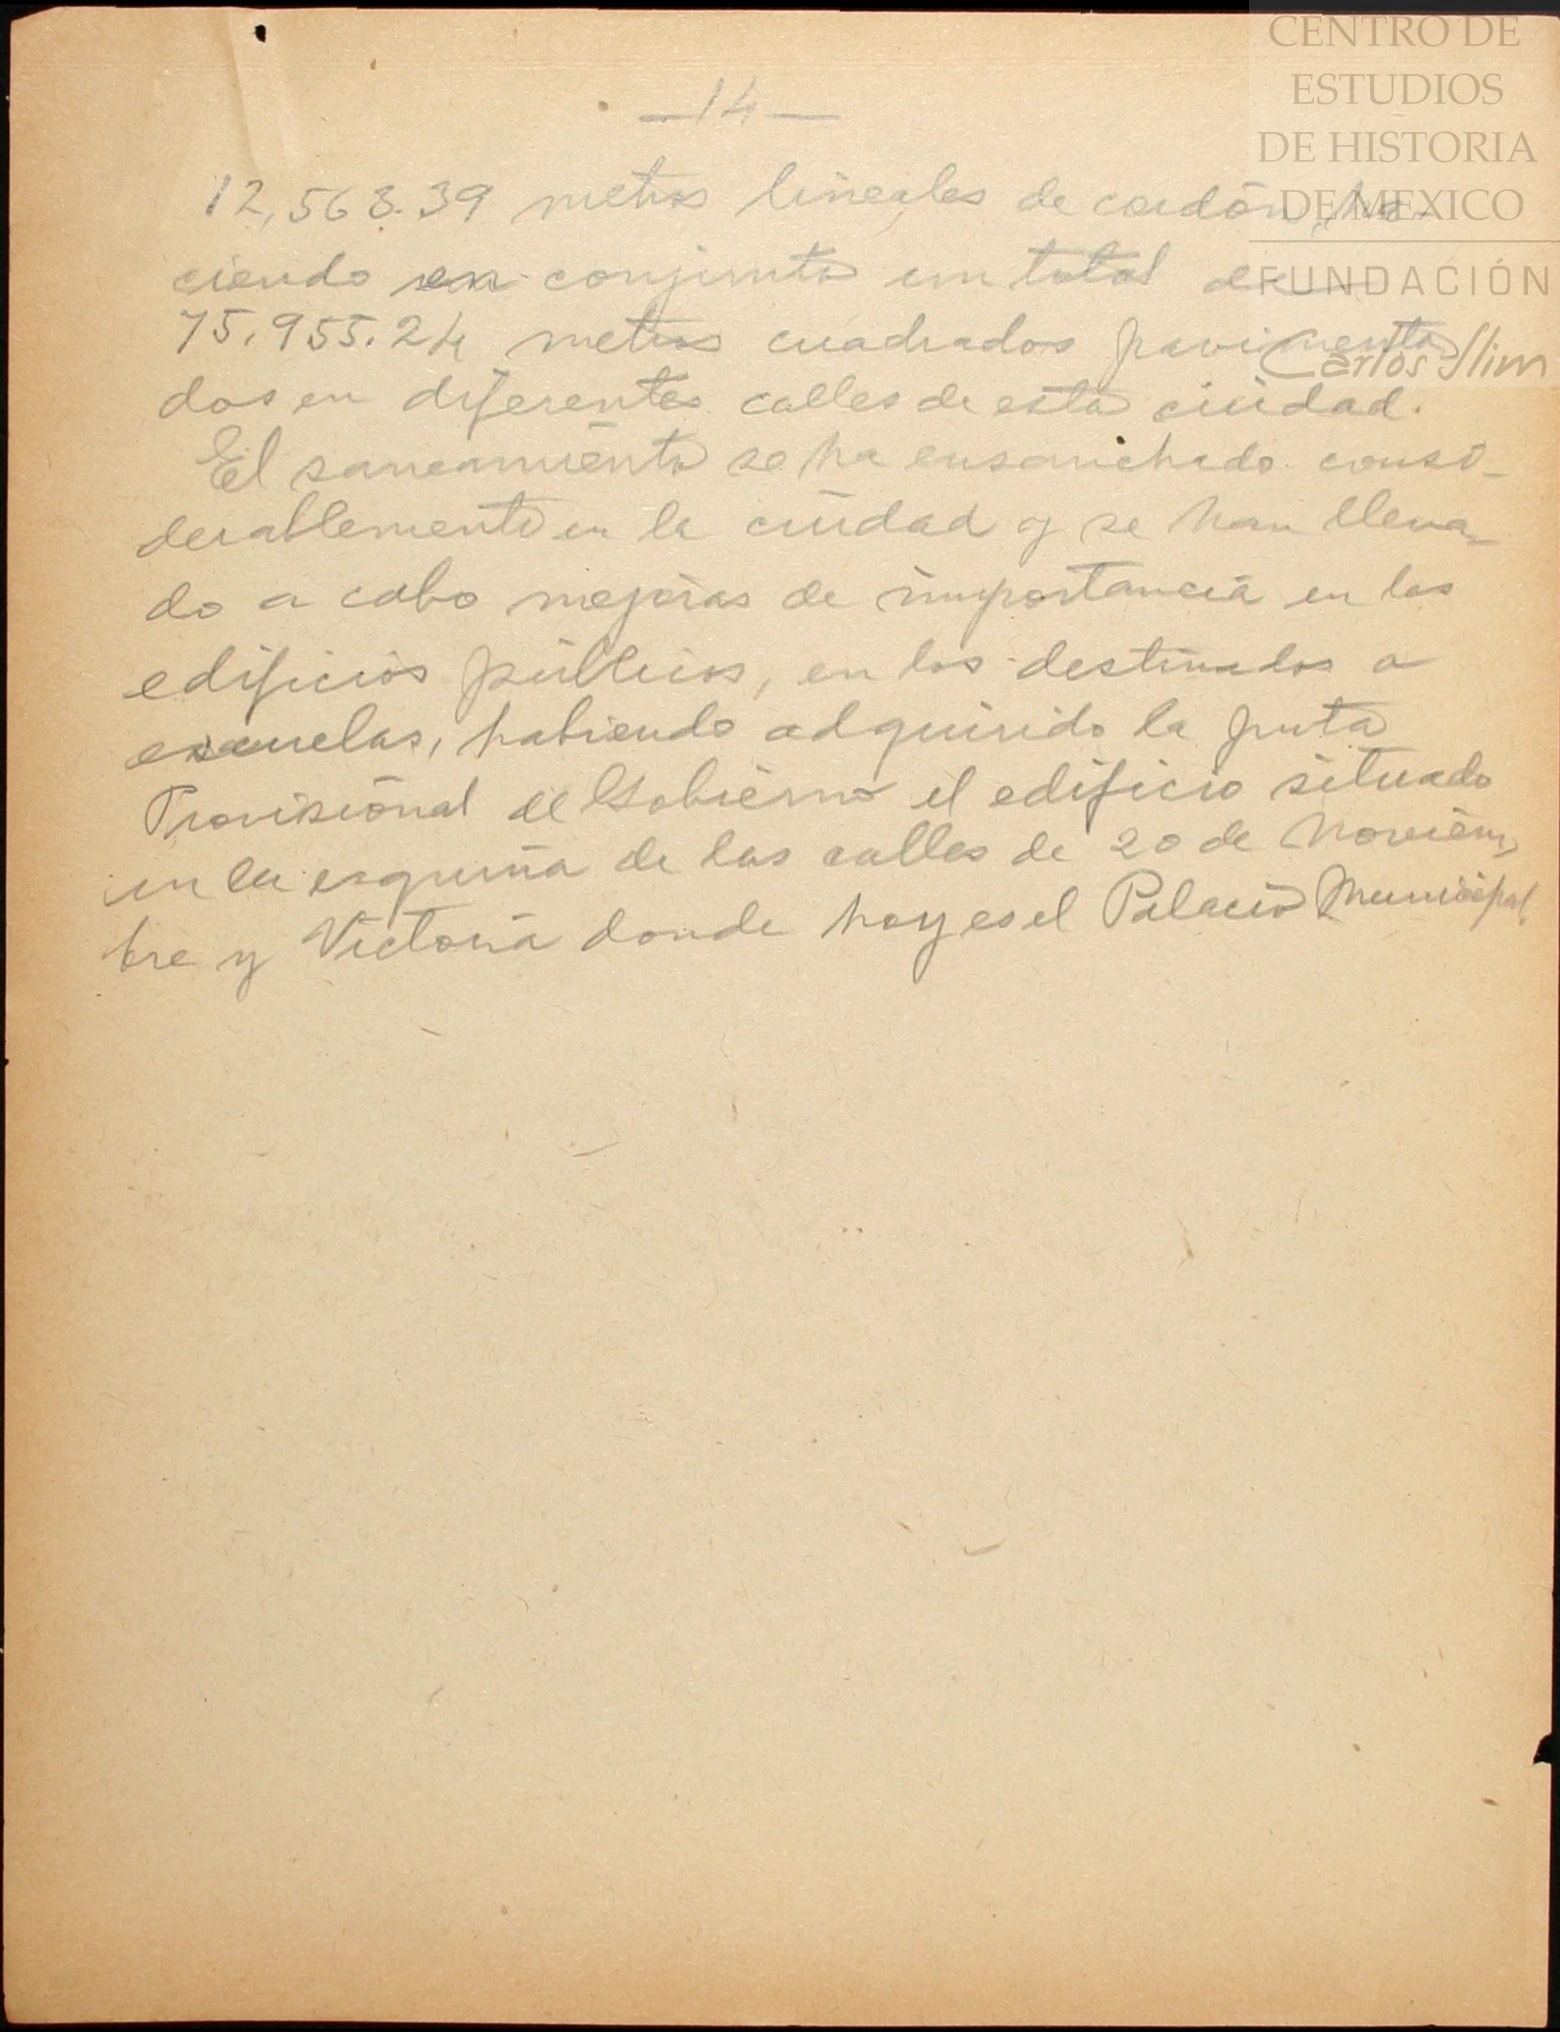 CENTRO DE
ESTUDIOS
DE HISTORIA
DE MEXICO
FUNDACIÓN
Carlos Slim
—14—
12,563.39 metros lineales de cordón, ha-
ciendo en conjunto un total de
75.955.24 metros cuadrados pavimenta
dos en diferentes calles de esta ciudad.
El saneamiento se ha ensanchado consi-
derablemente en la ciudad y se han lleva-
do a cabo mejoras de importancia en los
edificios públicos, en los destinados a
escuelas, habiendo adquirido la junta
Provisional de Gobierno el edificio situado
en la esquina de las calles de 20 de Noviem-
bre y Victoria donde hoy es el Palacio Municipal.